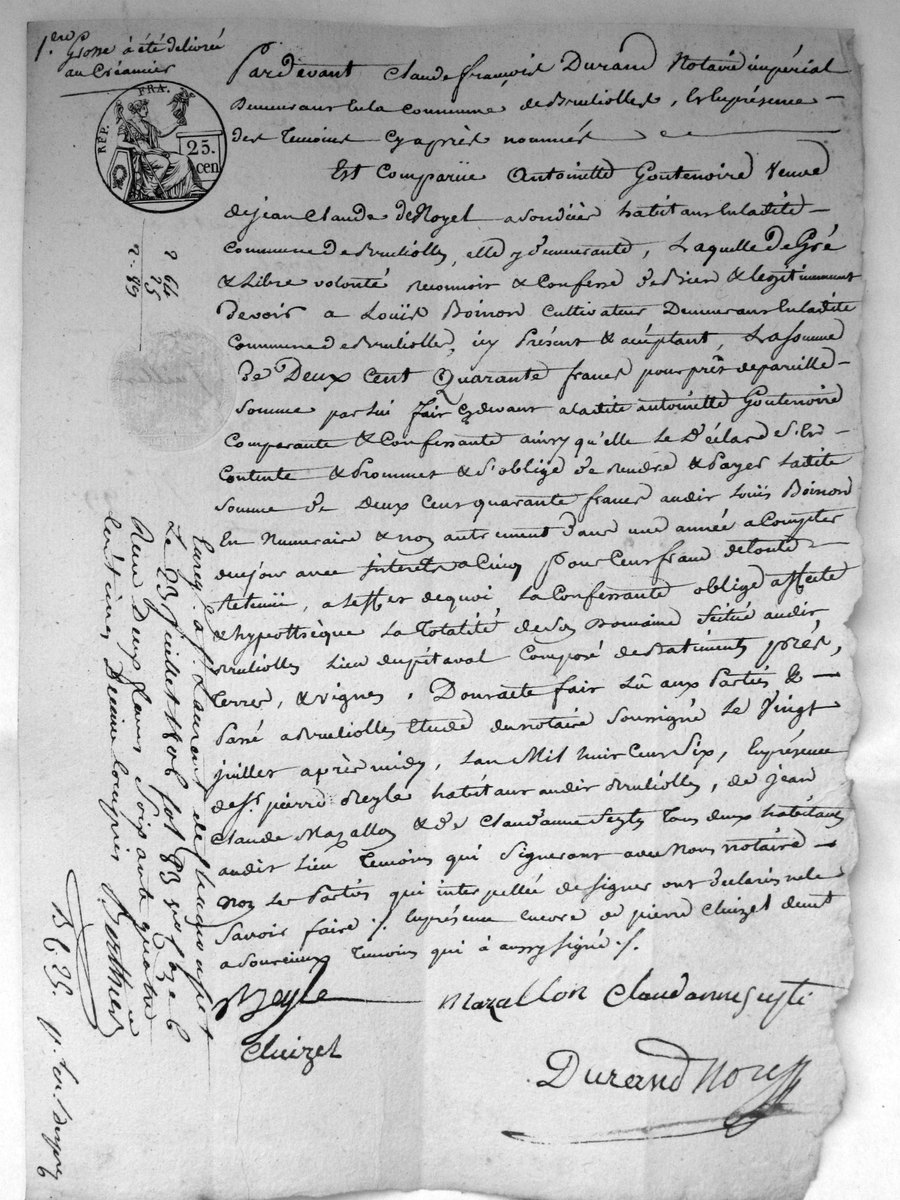 1.ere Grosse a été delivrée
au Créancier
REP. FRA.
25.
cen
Pardevant Claude françois Durand Notaire impérial
Demeurant En la Commune de Brulliolles, & En présence
des temoins Cy après nommés
Est Comparüe Antoinette Goutenoire Veuve
de jean Claude de Noyel habitant En ladite
Commune de Brulliolles, elle y demeurante, Laquelle De Gré
& Libre volonté reconnoit & Confesse De Bien & légitimement
Devoir a Louïs Boinon Cultivateur Demeurant En ladite
Commune de Brulliolles, icy Présent & acéptant, La Somme
De Deux Cent Quarante francs pour prêt de pareille
Somme par lui fait cydevant a ladite antoinette Goutenoire
Comparante & Confessante ainsy qu'elle Le Déclare S'En
Contente & Prommet & S'oblige De rendre & Payer Ladite
Somme De Deux Cent quarante francs audit Louïs Boinon
En Numeraire & non autrement Dans une année a Compter
du jour avec Interets a Cinq Pour Cent franc de toute
Retenüe, a L'effet de quoi La Confessante oblige affecte
& hypothèque La Totalité de Son Domaine Scitué audit
Brulliolles Lieu du pitaval Composé de Batiments prés,
terres, & vignes, Dont acte fait Lû aux Parties &
Passé a Brulliolles Etude du notaire Soussigné Le Vingt
juillet après midy, L'an Mil huit Cent Six, En présence
de S.r pierre Reyle habitant audit Brulliolles, de jean
Claude Mazallon & de Claud'anne Seyty Tous deux habitants
audit Lieu Temoins qui Signeront avec Nous notaire
Non Les Parties qui interpellée de Signer ont Declarés ne le
Savoir faire /. En présence encore de pierre Cluizel demt
a Sourcieux Temoin qui à aussy Signé ./.
Reyle
Mazallon Claudanne Seyti
Cluizel
Durand Nore
2 64
25
2 . 89
Enreg. a St Laurent de Chamousset
Le 23 juillet 1806 fol 83
Reçu Deux francs Soixante quatre
Centimes Dixieme Compris Berthier
B 6. 25.